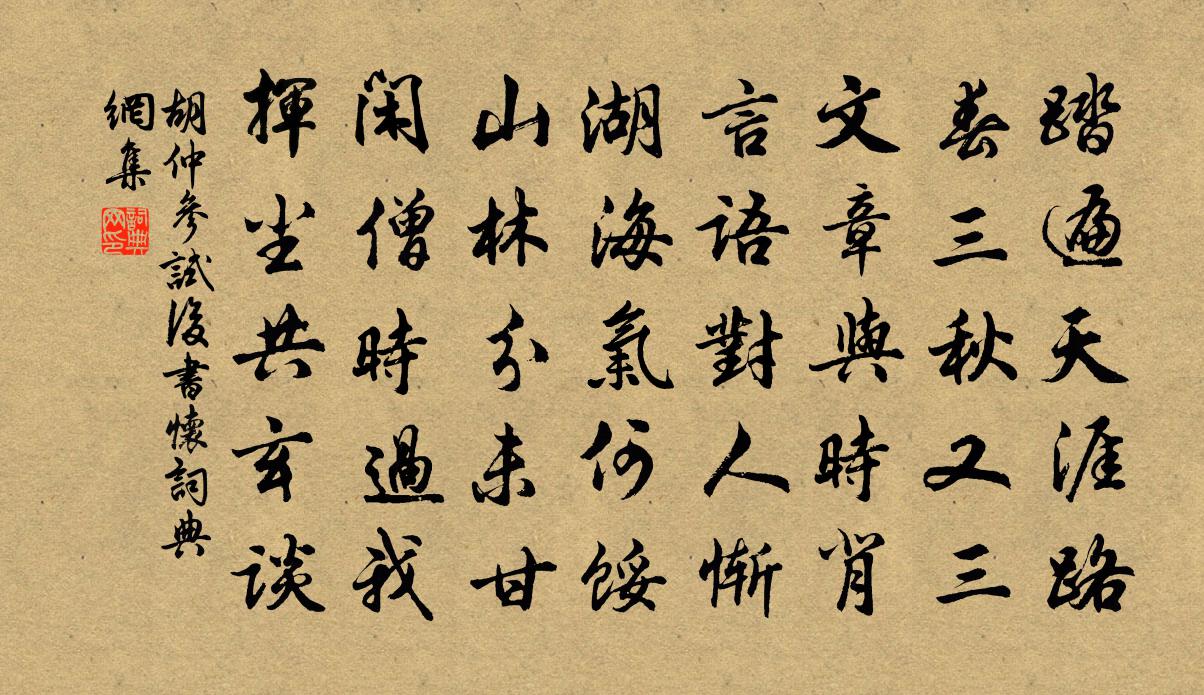 踏遍天涯路
春三秋又三
文章與時肖
言語對人慚
湖海氣何餒
山林分未甘
閑僧時過我
揮尘共玄談
胡仲參試後書懷詞典
網集
詞典網印